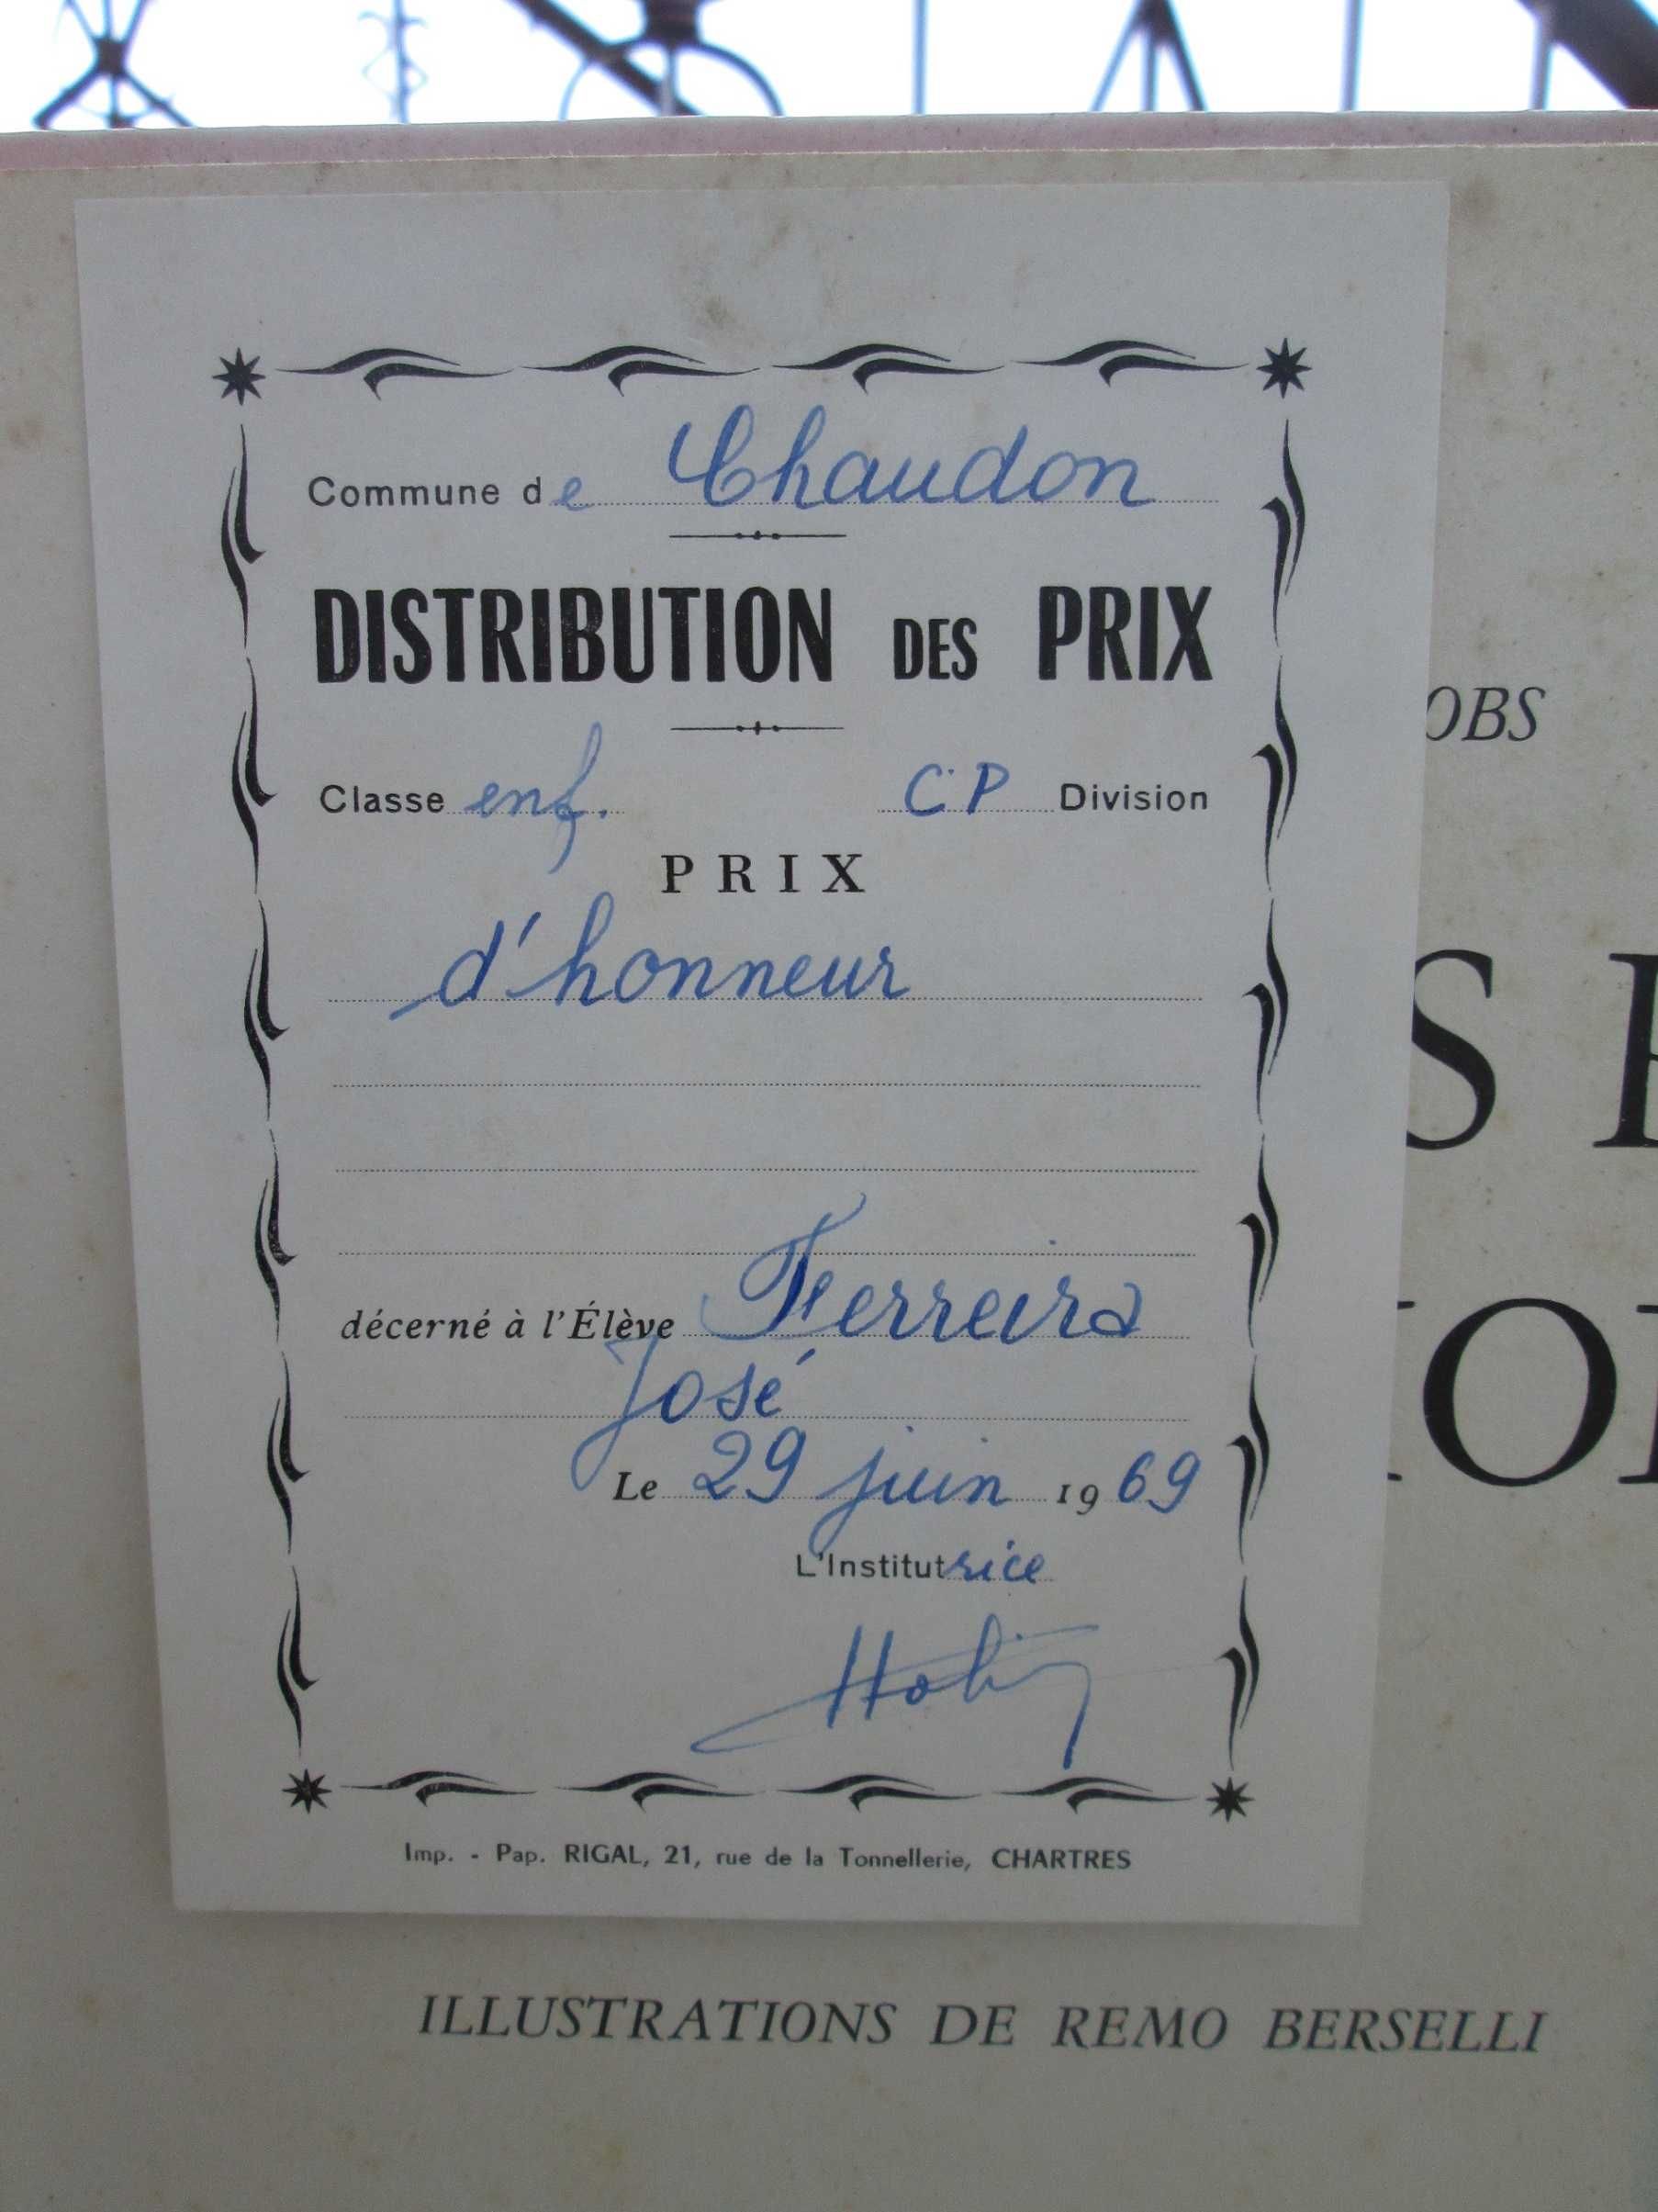 Commune de Chaudon
DISTRIBUTION DES PRIX
Classe enf. CP Division
PRIX
d'honneur
décerné à l'Élève Ferreira
José
Le 29 juin 1969
L'Institutrice
Imp. - Pap. RIGAL, 21, rue de la Tonnellerie, CHARTRES
OBS
S
ILLUSTRATIONS DE REMO BERSELLI